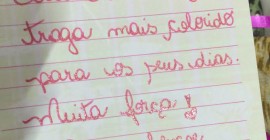 traga mais colorido
para os seus dias.
Muita força!